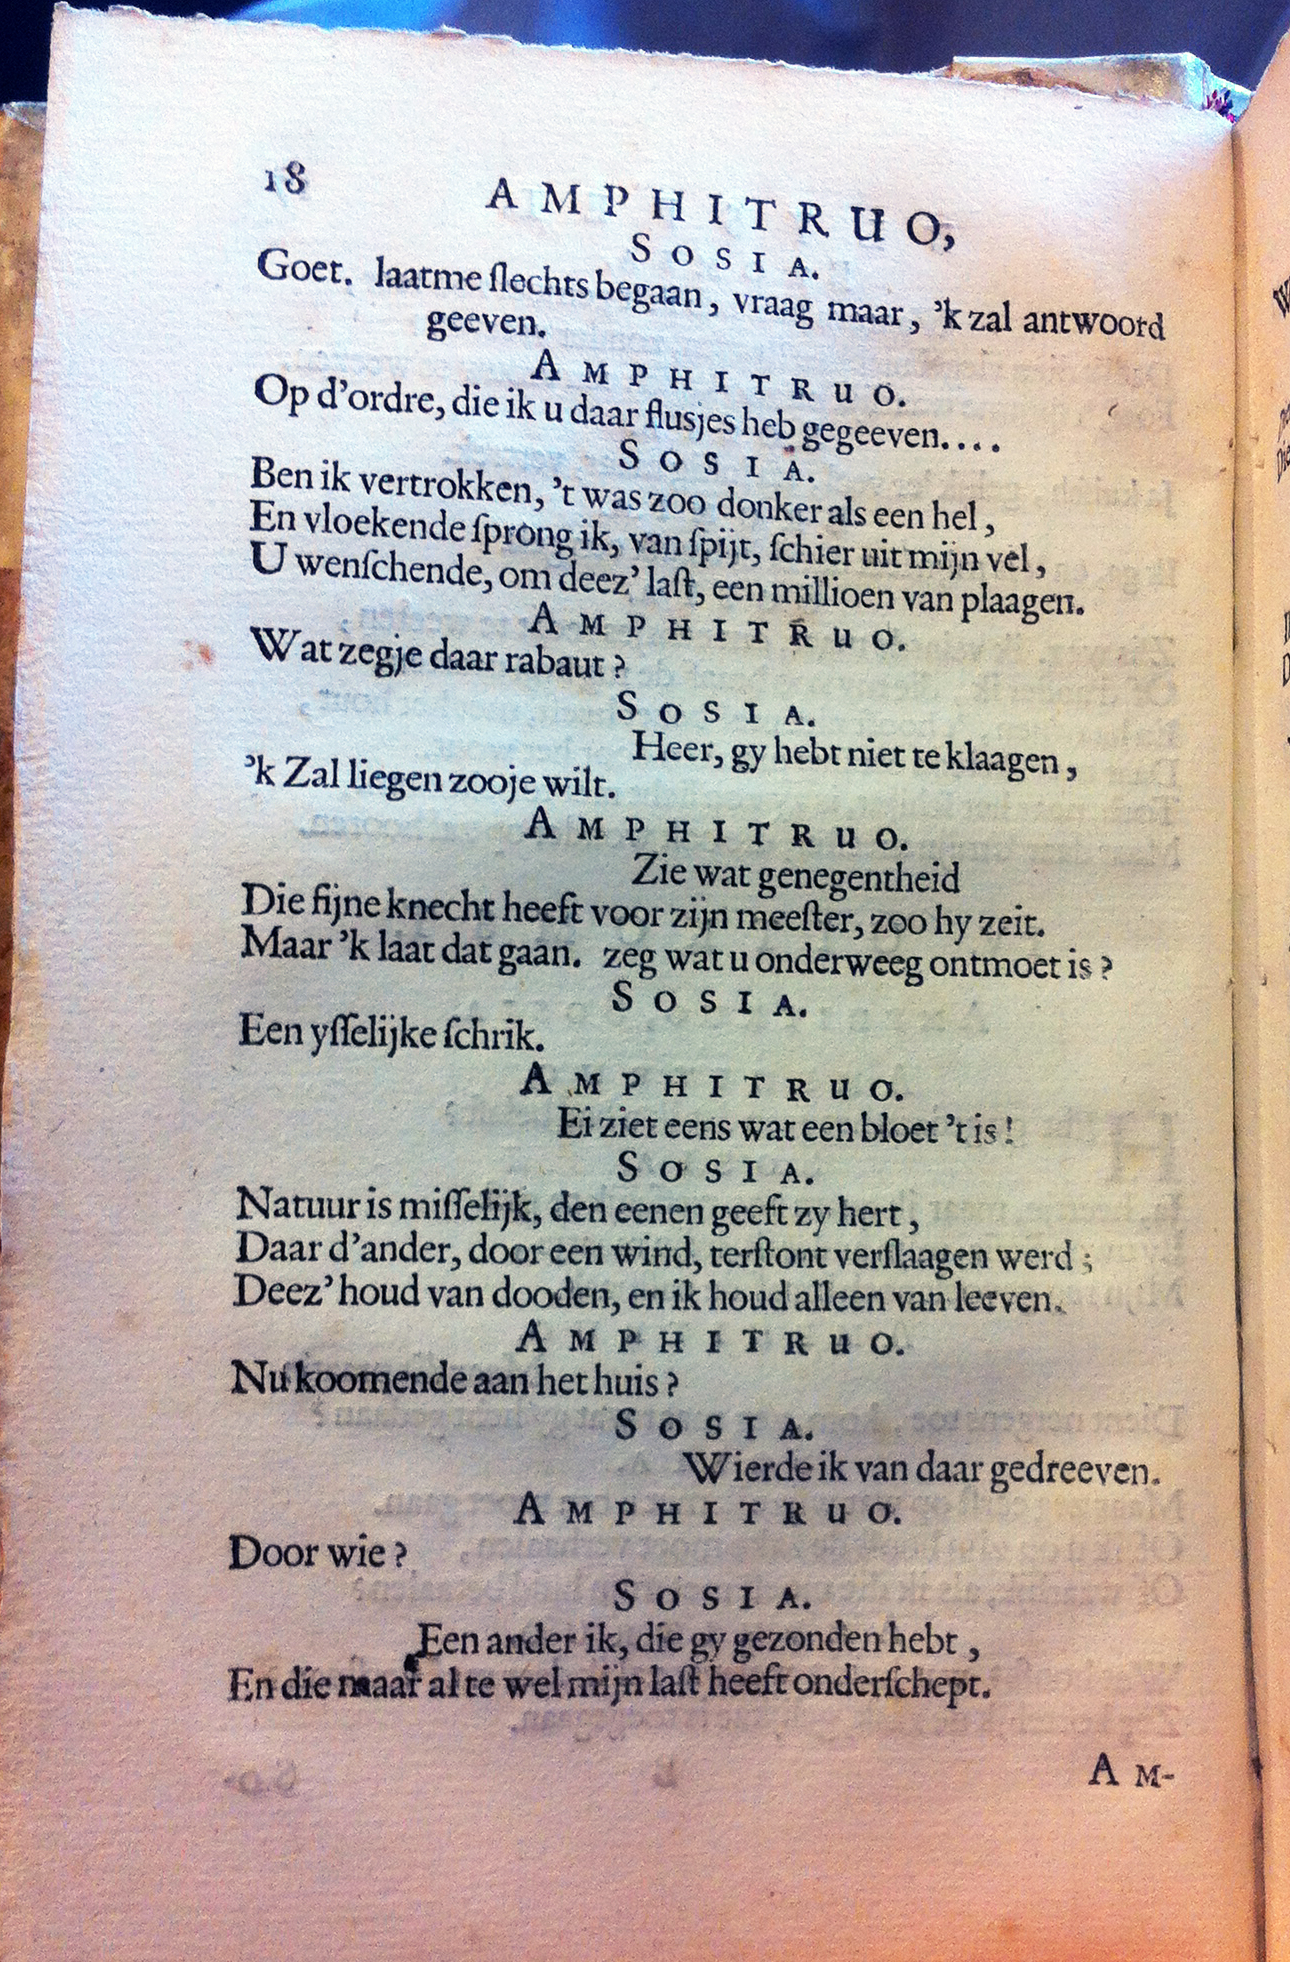 18
AMPHITRUO,
SOSIA.
Goet. laatme ſlechts begaan, vraag maar, 'k zal antwoord
geeven.
AMPHITRUO.
Op d'ordre, die ik u daar fluſjes heb gegeeven....
SOSIA.
Ben ik vertrokken, 't was zoo donker als een hel,
En vloekende ſprong ik, van ſpijt, ſchier uit mijn vel,
U wenſchende, om deez' laſt, een millioen van plaagen.
AMPHITRUO.
Wat zegje daar rabaut?
SOSIA.
Heer, gy hebt niet te klaagen,
'k Zal liegen zooje wilt.
AMPHITRUO.
Zie wat genegentheid
Die fijne knecht heeft voor zijn meeſter, zoo hy zeit.
Maar 'k laat dat gaan. zeg wat u onderweeg ontmoet is?
SOSIA.
Een yſſelijke ſchrik.
AMPHITRUO.
Ei ziet eens wat een bloet 't is!
SOSIA.
Natuur is miſſelijk, den eenen geeft zy hert,
Daar d'ander, door een wind, terſtont verſlaagen werd;
Deez' houd van dooden, en ik houd alleen van leeven.
AMPHITRUO.
Nu koomende aan het huis?
SOSIA.
Wierde ik van daar gedreeven.
AMPHITRUO.
Door wie?
SOSIA.
Een ander ik, die gy gezonden hebt,
En die maar al te wel mijn laſt heeft onderſchept.
AM-